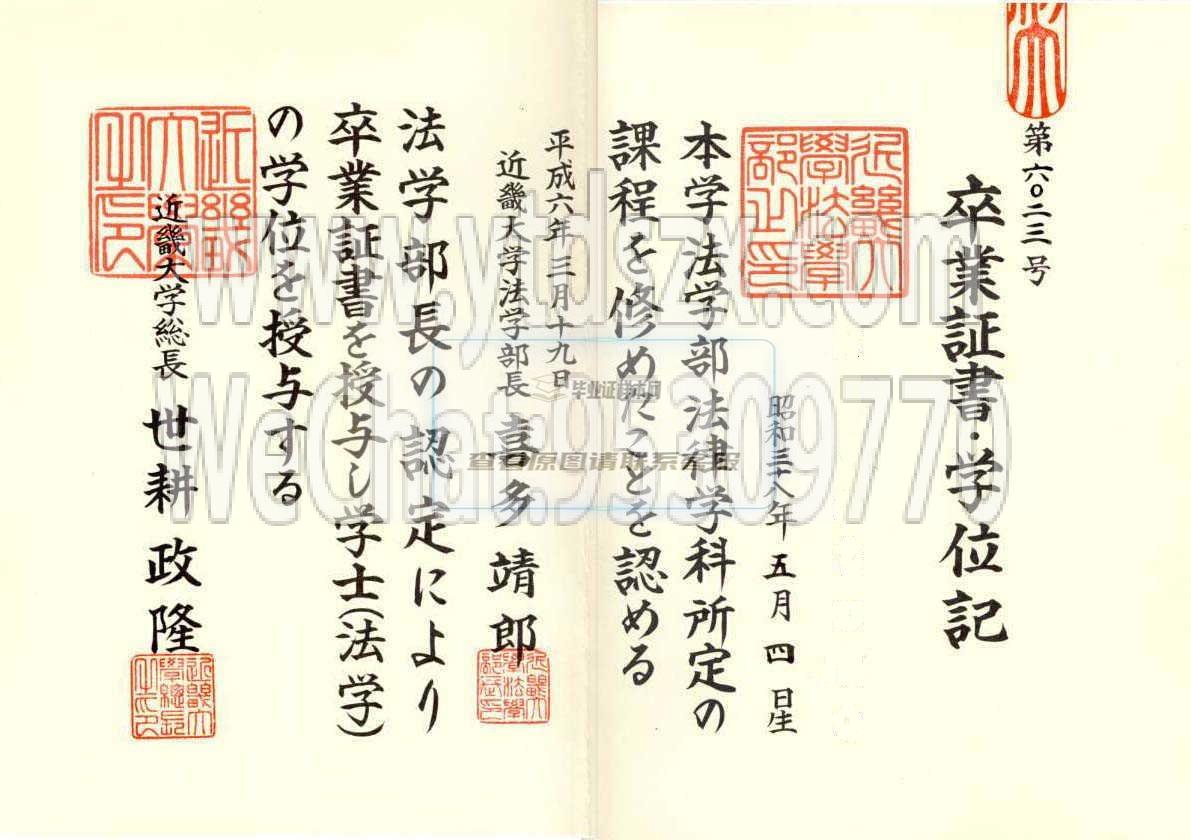 第六〇二三号
卒業証書・学位記
昭和三十八年五月四日生
本学法学部法律学科所定の
課程を修めたことを認める
平成六年三月十九日
近畿大学法学部長 喜多靖郎
法学部長の認定により
卒業証書を授与し学士(法学)
の学位を授与する
近畿大学総長 世耕政隆
近畿大學法學部之印
近畿大之印
www.ytdszx.com
WeChat:95309770
毕业证样本网
查看原图请联系客服